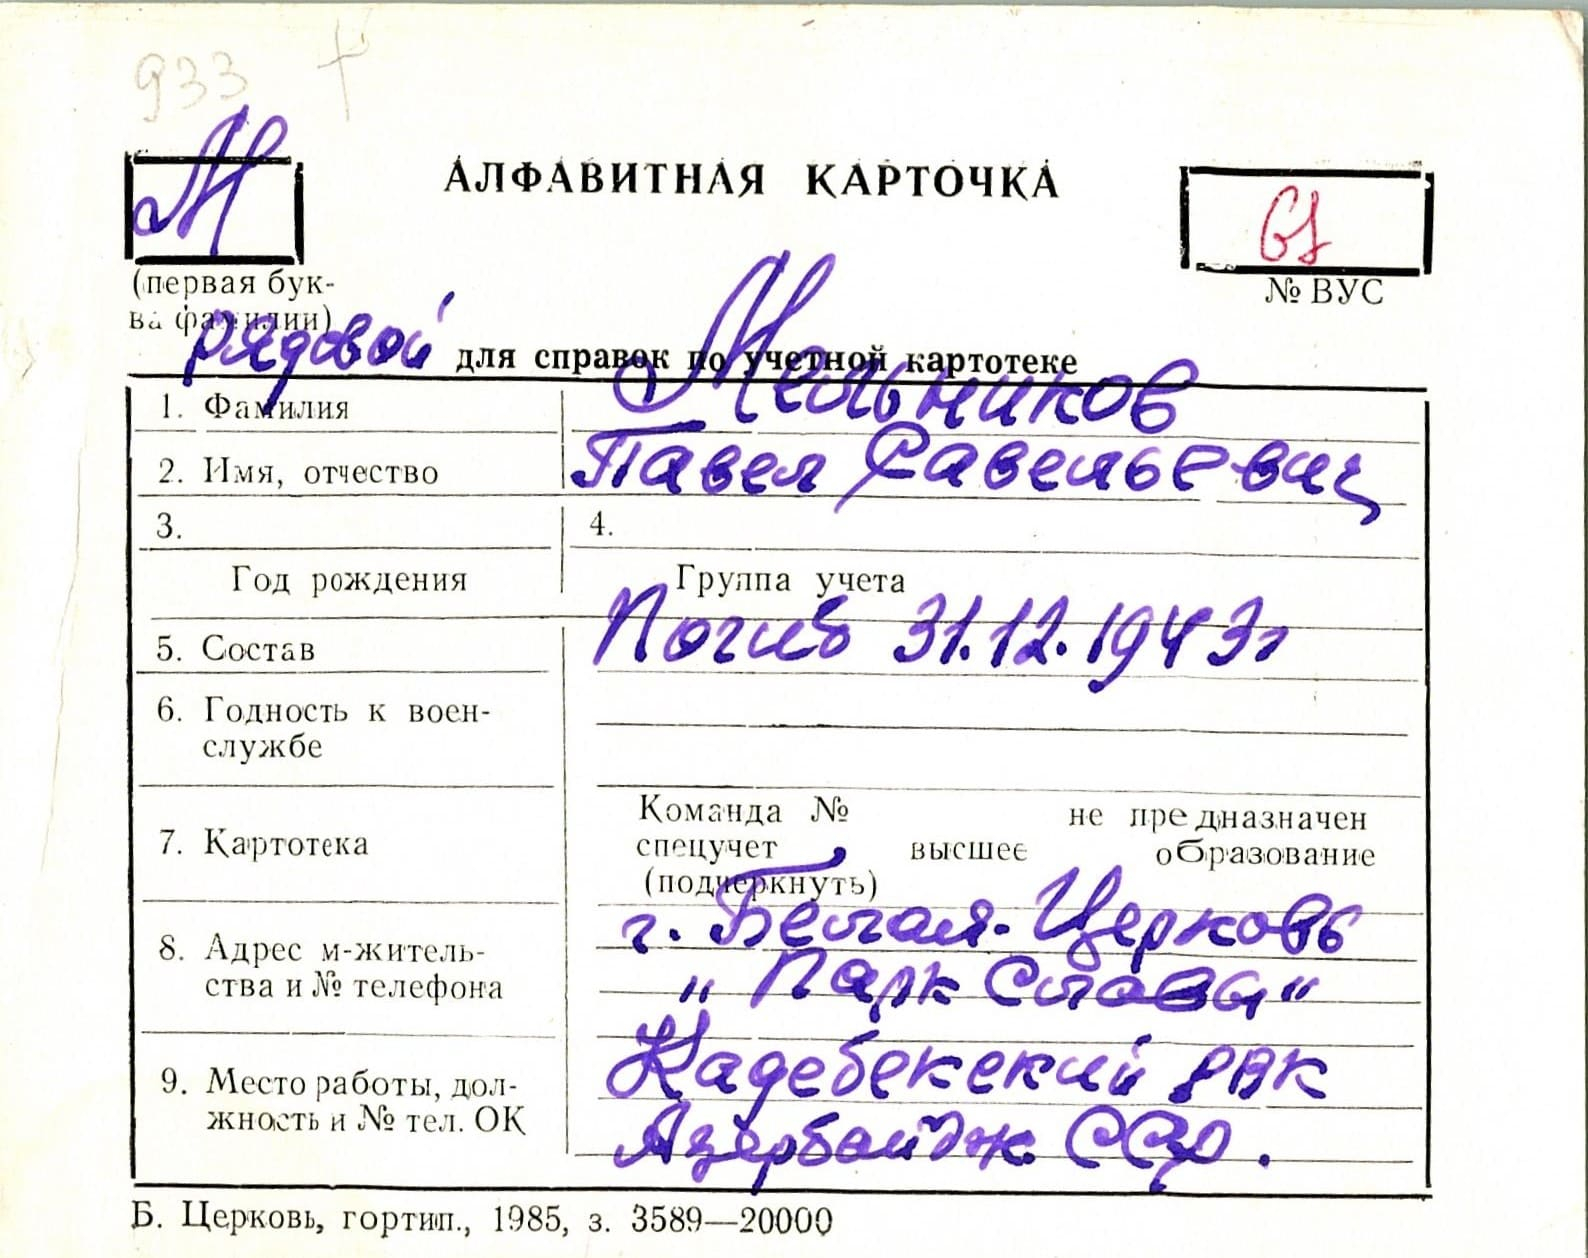 933 †
М
АЛФАВИТНАЯ КАРТОЧКА
(первая бук-
ва фамилии)
№ ВУС
рядовой для справок по учетной картотеке
1. Фамилия Мельников
2. Имя, отчество Павел Савельевич
3. 4.
Год рождения Группа учета
5. Состав Погиб 31.12.1943г
6. Годность к воен-
службе
7. Картотека
Команда № не предназначен
спецучет высшее образование
(подчеркнуть)
8. Адрес м-житель-
ства и № телефона
г. Белая-Церковь
„ Парк Славы“
9. Место работы, дол-
жность и № тел. ОК
Кадебекский РВК
Азербайдж. ССР.
Б. Церковь, гортип., 1985, з. 3589—20000